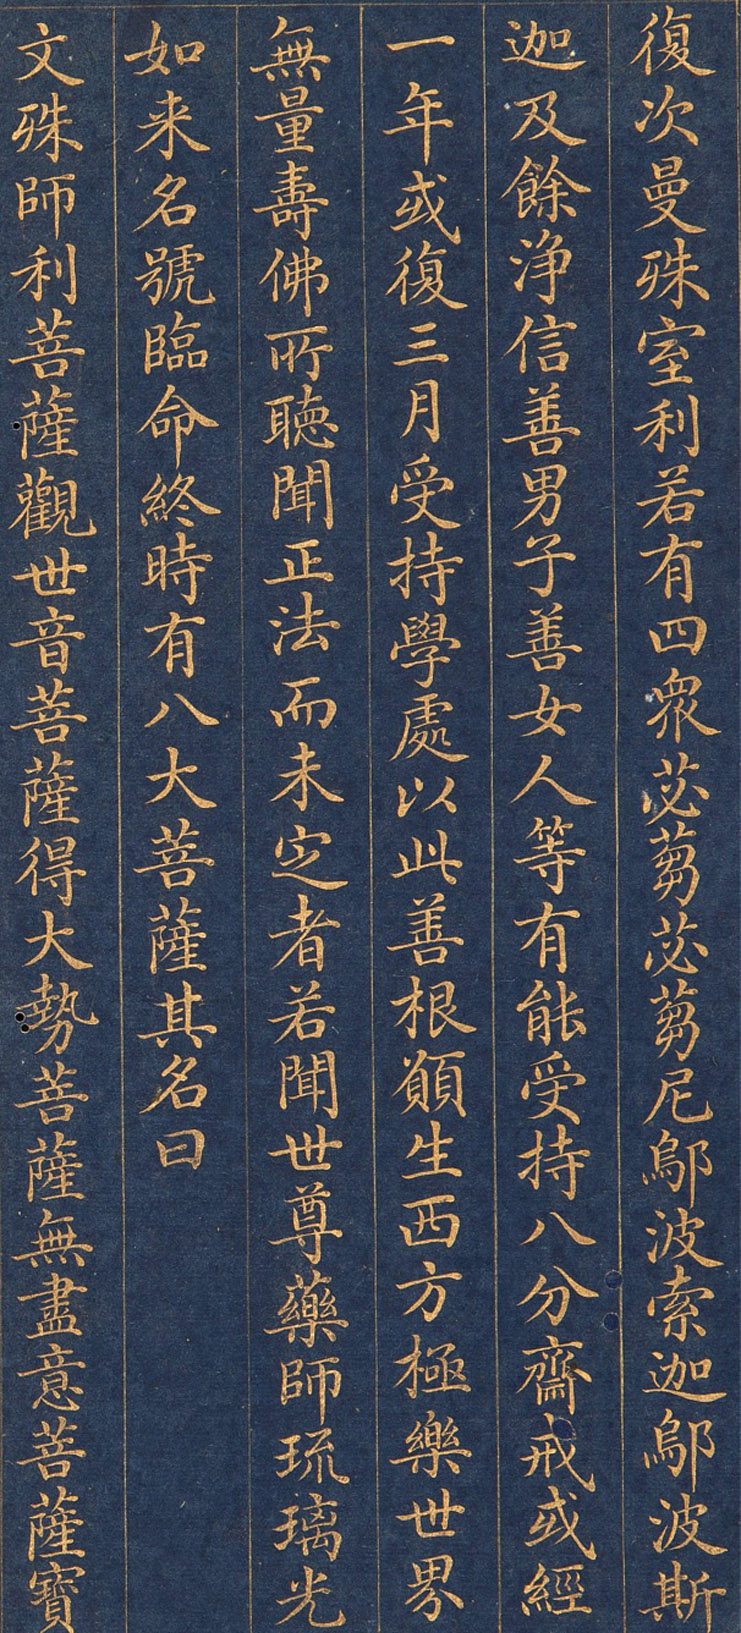 復次曼殊室利若有四衆苾蒭苾蒭尼鄔波索迦鄔波斯
迦及餘浄信善男子善女人等有能受持八分齋戒或經
一年或復三月受持學處以此善根願生西方極樂世界
無量壽佛所聴聞正法而未定者若聞世尊藥師琉璃光
如来名號臨命終時有八大菩薩其名曰
文殊師利菩薩觀世音菩薩得大勢菩薩無盡意菩薩寶